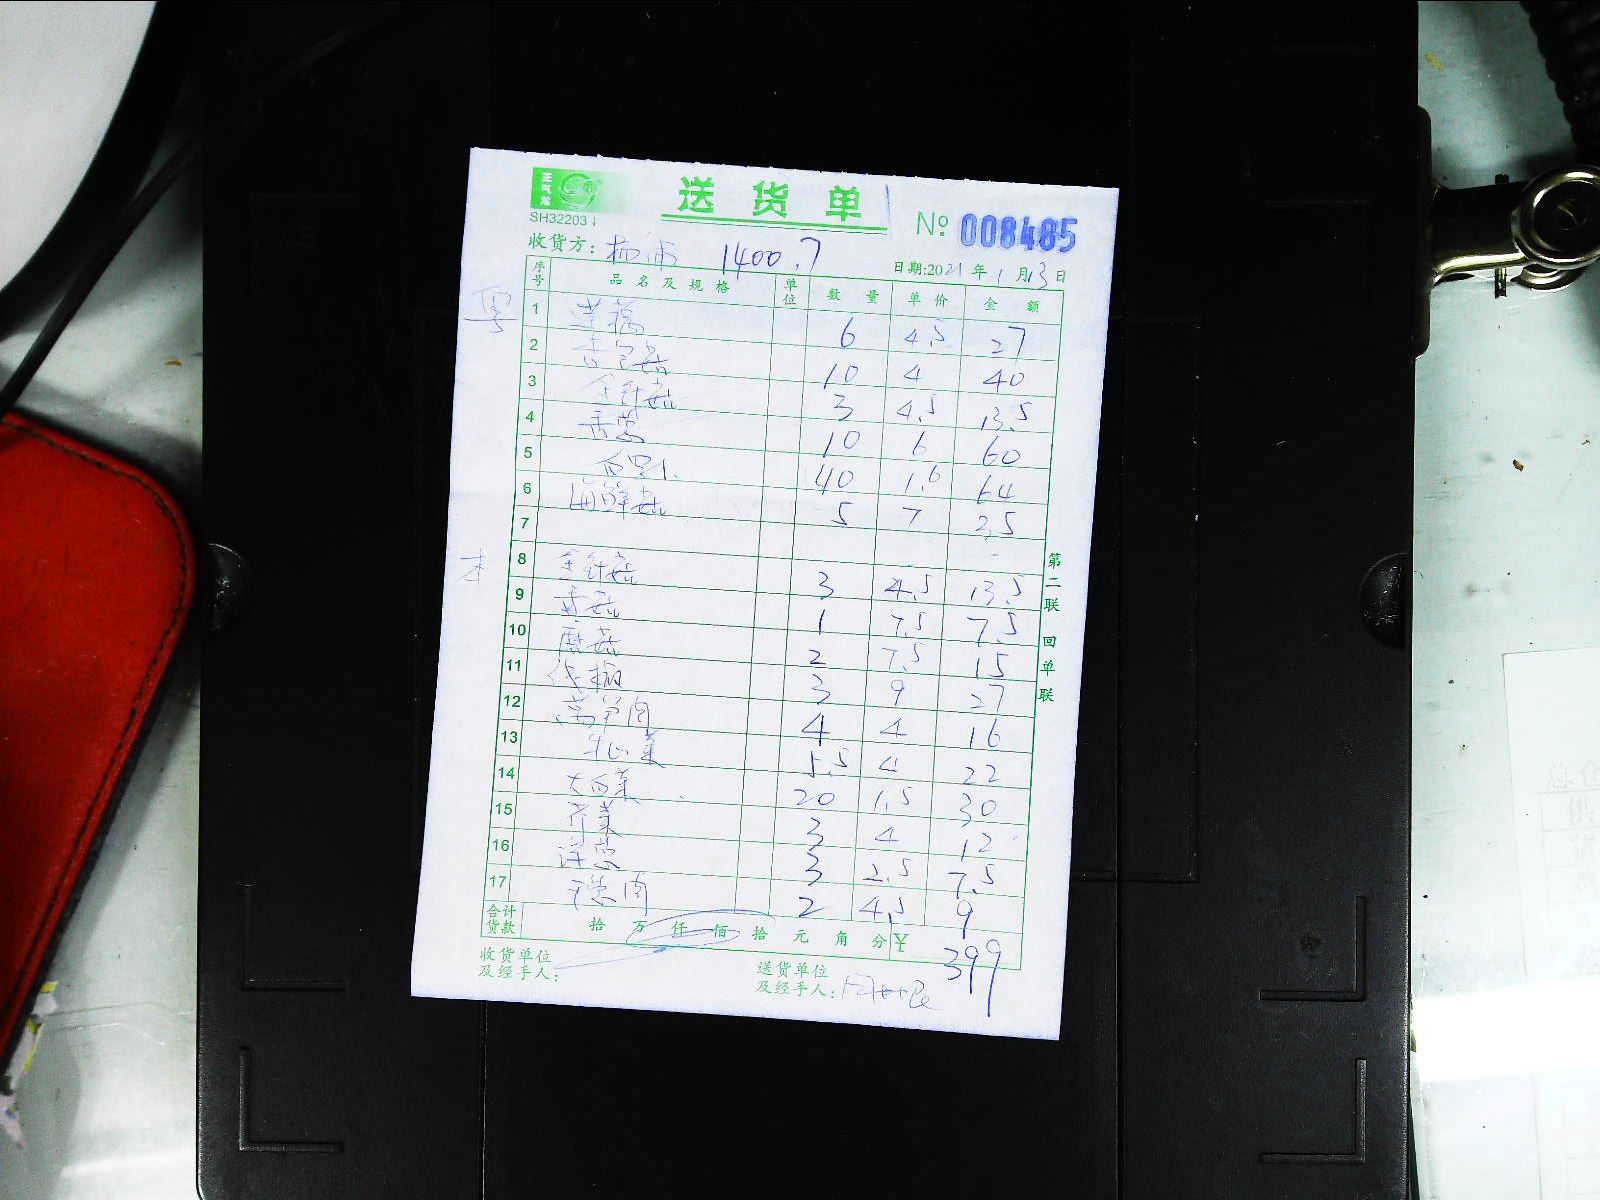 正气龙
送货单
SH32203
No 008485
收货方: 1400.7
日期:2021年1月13日
序号 品名及规格 单位 数量 单价 金额
粤
1 莲藕 6 4.5 27
2 杏包菇 10 4 40
3 金针菇 3 4.5 13.5
4 香葱 10 6 60
5 40 1.6 64
6 海鲜菇 5 7 35
7
8 金针菇 3 4.5 13.5
9 香菇 1 7.5 7.5
10 蘑菇 2 7.5 15
11 3 9 27
12 莴笋肉 4 4 16
13 包心菜 5.5 4 22
14 大白菜 20 1.5 30
15 芹菜 3 4 12
16 洋葱 3 2.5 7.5
17 2 4.5 9
合计货款 拾万仟佰拾元角分 ¥ 399
收货单位及经手人:
送货单位及经手人:
第二联 回单联